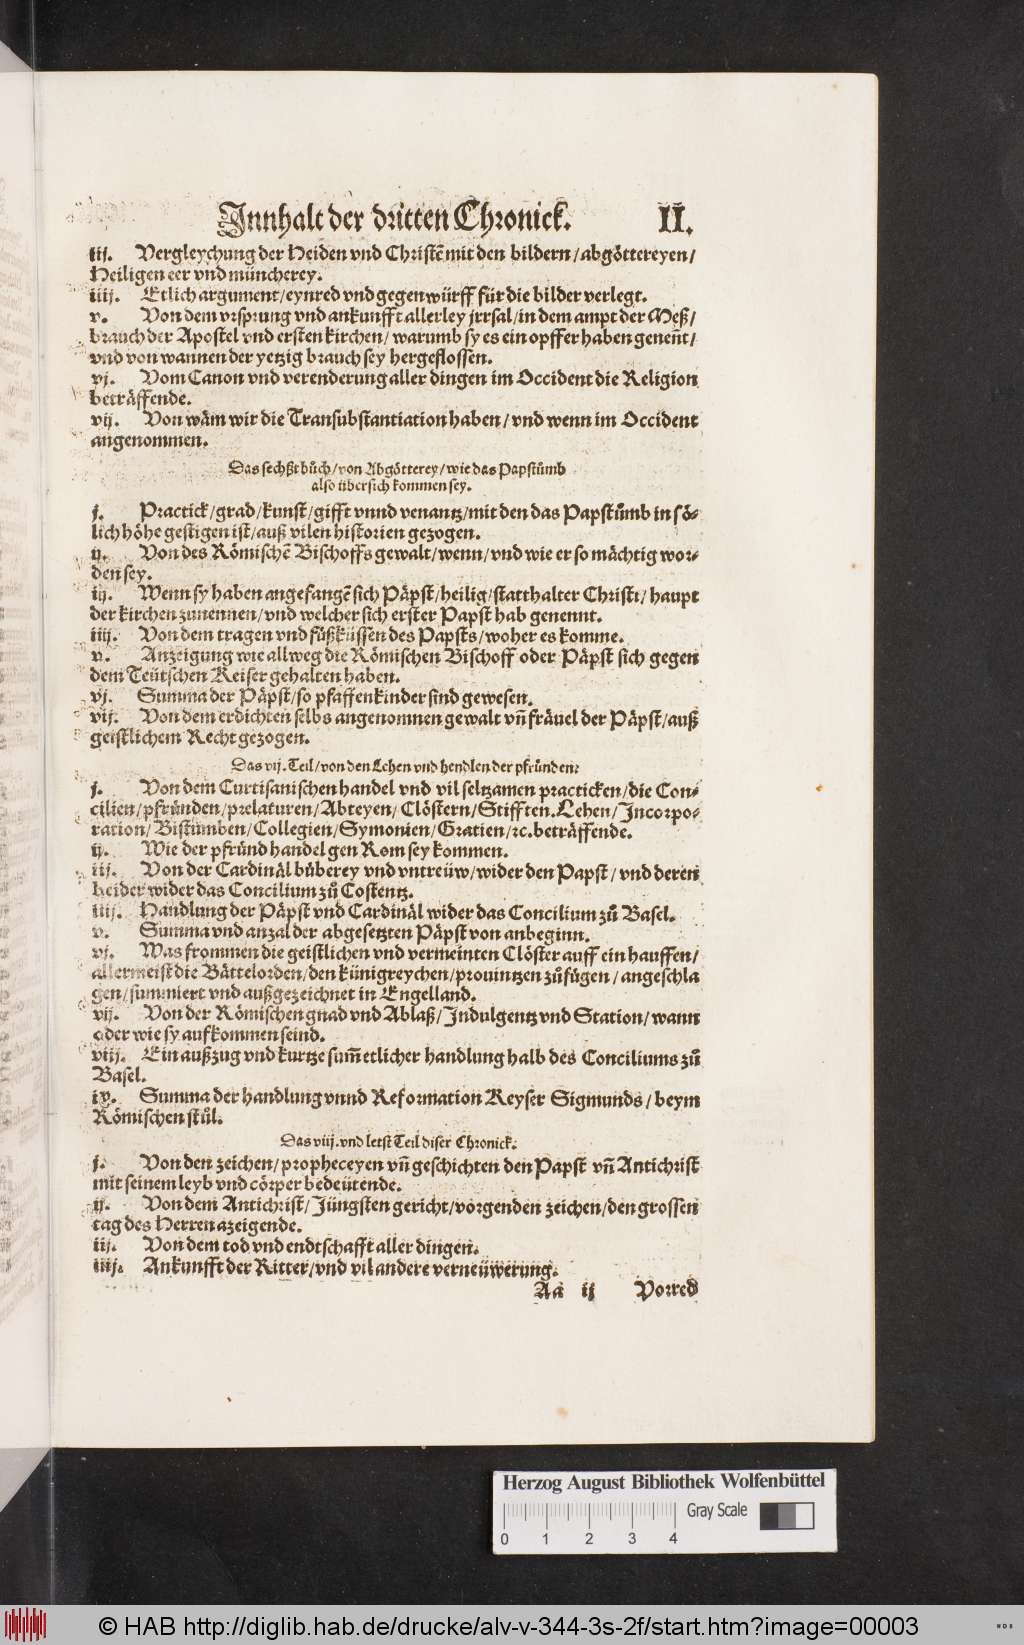 Innhalt der dritten Chronick. II.
iij. Vergleychung der Heiden vnd Christẽ mit den bildern / abgöttereyen /
Heiligen eer vnd müncherey.
iiij. Etlich argument / eynred vnd gegenwürff für die bilder verlegt.
v. Von dem vrsprung vnd ankunfft allerley jrrsal / in dem ampt der Meß /
brauch der Apostel vnd ersten kirchen / warumb sy es ein opffer haben genent /
vnd von wannen der yetzig brauch sey hergeflossen.
vj. Vom Canon vnd verenderung aller dingen im Occident die Religion
beträffende.
vij. Von wäm wir die Transubstantiation haben / vnd wenn im Occident
angenommen.
Das sechßt bůch / von Abgötterey / wie das Papstůmb
also übersich kommen sey.
j. Practick / grad / kunst / gifft vnnd venantz / mit den das Papstůmb in sö-
lich höhe gestigen ist / auß vilen historien gezogen.
ij. Von des Römischẽ Bischoffs gewalt / wenn / vnd wie er so mächtig wor-
den sey.
iij. Wenn sy haben angefangẽ sich Päpst / heilig / statthalter Christi / haupt
der kirchen zunennen / vnd welcher sich erster Papst hab genennt.
iiij. Von dem tragen vnd fůßküssen des Papsts / woher es komme.
v. Anzeigung wie allweg die Römischen Bischoff oder Päpst sich gegen
dem Teütschen Keiser gehalten haben.
vj. Summa der Päpst / so pfaffenkinder sind gewesen.
vij. Von dem erdichten selbs angenomnen gewalt vñ fräuel der Päpst / auß
geistlichem Recht gezogen.
Das vij. Teil / von den Lehen vnd hendlen der pfründen:
j. Von dem Curtisanischen handel vnd vil seltzamen practicken / die Con-
cilien / pfründen / prelaturen / Abteyen / Clöstern / Stifften. Lehen / Incorpo-
ration / Bistumben / Collegien / Symonien / Gratien / ꝛc. beträffende.
ij. Wie der pfründ handel gen Rom sey kommen.
iij. Von der Cardinäl bůberey vnd vntreüw / wider den Papst / vnd deren
beider wider das Concilium zů Costentz.
iiij. Handlung der Päpst vnd Cardinäl wider das Concilium zů Basel.
v. Summa vnd anzal der abgesetzten Päpst von anbeginn.
vj. Was frommen die geistlichen vnd vermeinten Clöster auff ein hauffen /
allermeist die Bättelorden / den künigreychen / prouintzen zůfügen / angeschla
gen / summiert vnd außgezeichnet in Engelland.
vij. Von der Römischen gnad vnd Ablaß / Indulgentz vnd Station / wann
oder wie sy aufkommen seind.
viij. Ein außzug vnd kurtze sum̃ etlicher handlung halb des Conciliums zů
Basel.
ix. Summa der handlung vnnd Reformation Keyser Sigmunds / beym
Römischen stůl.
Das viij. vnd letst Teil diser Chronick.
j. Von den zeichen / propheceyen vñ geschichten den Papst vñ Antichrist
mit seinem leyb vnd cörper bedeütende.
ij. Von dem Antichrist / Jüngsten gericht / vorgenden zeichen / den grossen
tag des Herren azeigende.
iij. Von dem tod vnd endtschafft aller dingen.
iiij. Ankunfft der Ritter / vnd vil andere verneüwerung.
Aa ij Vorred
Herzog August Bibliothek Wolfenbüttel
Gray Scale
0 1 2 3 4
© HAB http://diglib.hab.de/drucke/alv-v-344-3s-2f/start.htm?image=00003